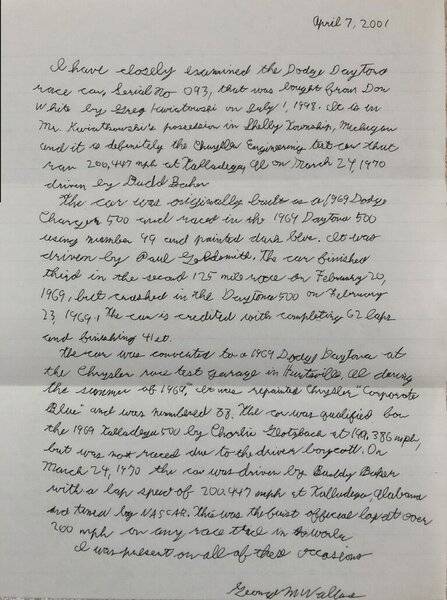 April 7, 2001
I have closely examined the Dodge Daytona
race car, Serial No 093, that was bought from Don
White by Greg Kwiatowski on July 1, 1998. It is in
Mr. Kwiathowski's possession in Shelly Township, Michigan
and it is definitely the Chrysler Engineering test car that
ran 200.447 mph at Talladega, Al on March 24, 1970
driven by Budd Baker
The car was originally built as a 1969 Dodge
Charger 500 and raced in the 1969 Daytona 500
using number 49 and painted dark blue. It was
driven by Paul Goldsmith. The car finished
third in the second 125 mile race on February 20,
1969, but crashed in the Daytona 500 on February
23, 1969. The car is credited with completing 62 laps
and finishing 41st.
The car was converted to a 1969 Dodge Daytona at
the Chrysler race test garage in Huntsville, Al during
the summer of 1969. It was repainted Chrysler "Corporate
Blue" and was numbered 88. The car was qualified for
the 1969 Talladega 500 by Charlie Glotzbach at 199.386 mph,
but was not raced due to the driver boycott. On
March 24, 1970 the car was driven by Buddy Baker
with a lap speed of 200.447 mph at Talladega, Alabama
and timed by NASCAR. This was the first official lap at over
200 mph on any race track in the world
I was present on all of these occasions
George M Wallace